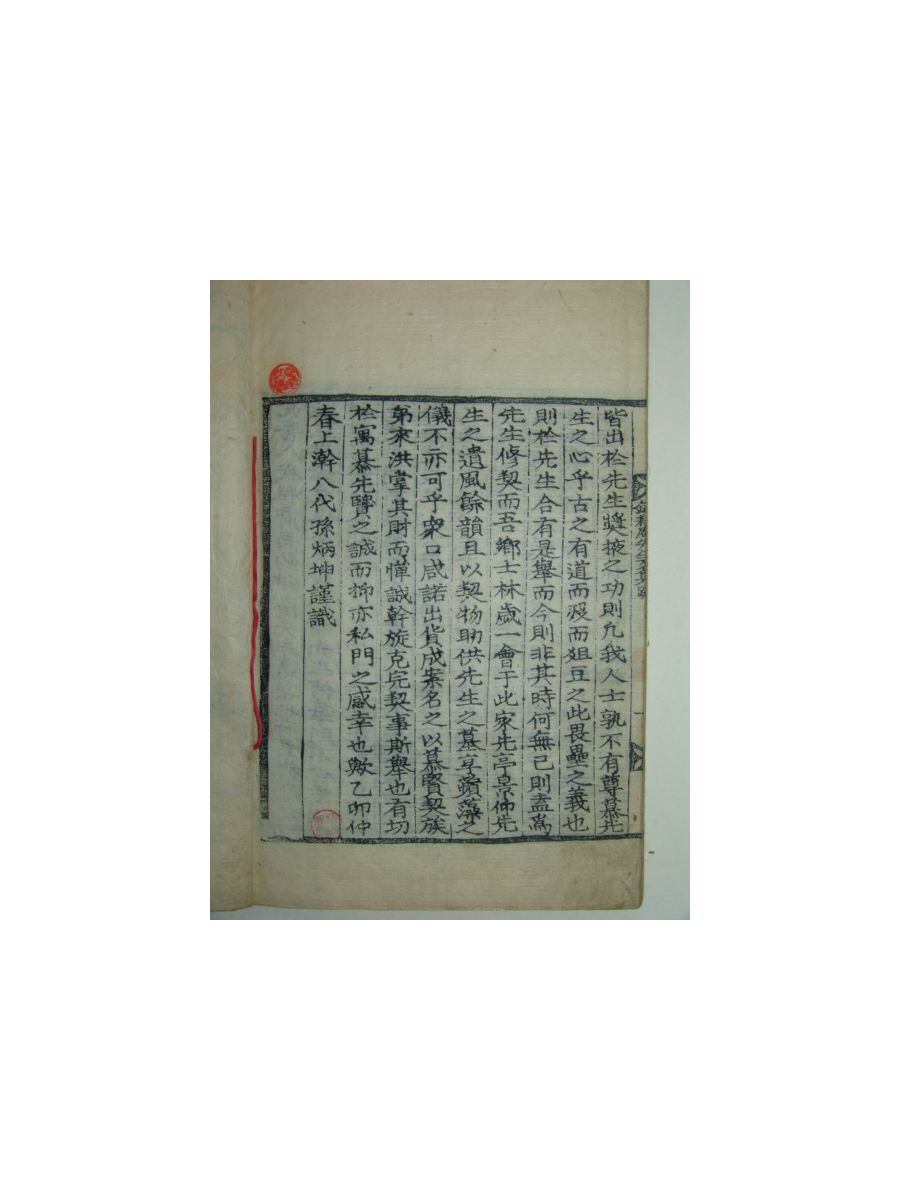 皆出於先生奬掖之功則凡我人士孰不有尊慕先
生之心乎古之有道而沒而俎豆之此畏壘之義也
則於先生合有是舉而今則非其時何無已則盍爲
先生修契而吾鄉士林歲一會于此家先亭景仰先
生之遺風餘韻且以契物助供先生之墓享蘋藻之
儀不亦可乎衆口咸諾出貨成案名之以慕賢契族
弟來洪掌其財而憚誠幹旋克完契事斯舉也有切
於寓慕先賢之誠而抑亦私門之感幸也歟乙卯仲
春上澣八代孫炳坤謹識